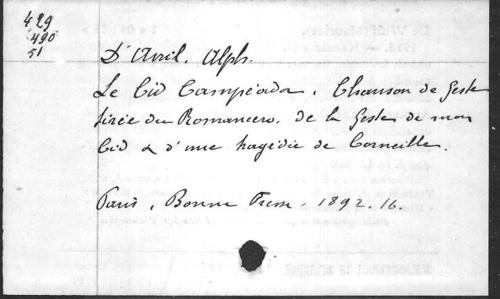 429
490
51
D'Avril. Alph.
Le Cid Campéador. Chanson de Geste
tirée du Romancero. de la Geste de mon
Cid & d'une tragédie de Corneille.
Paris, Bonne Presse, 1892. 16.